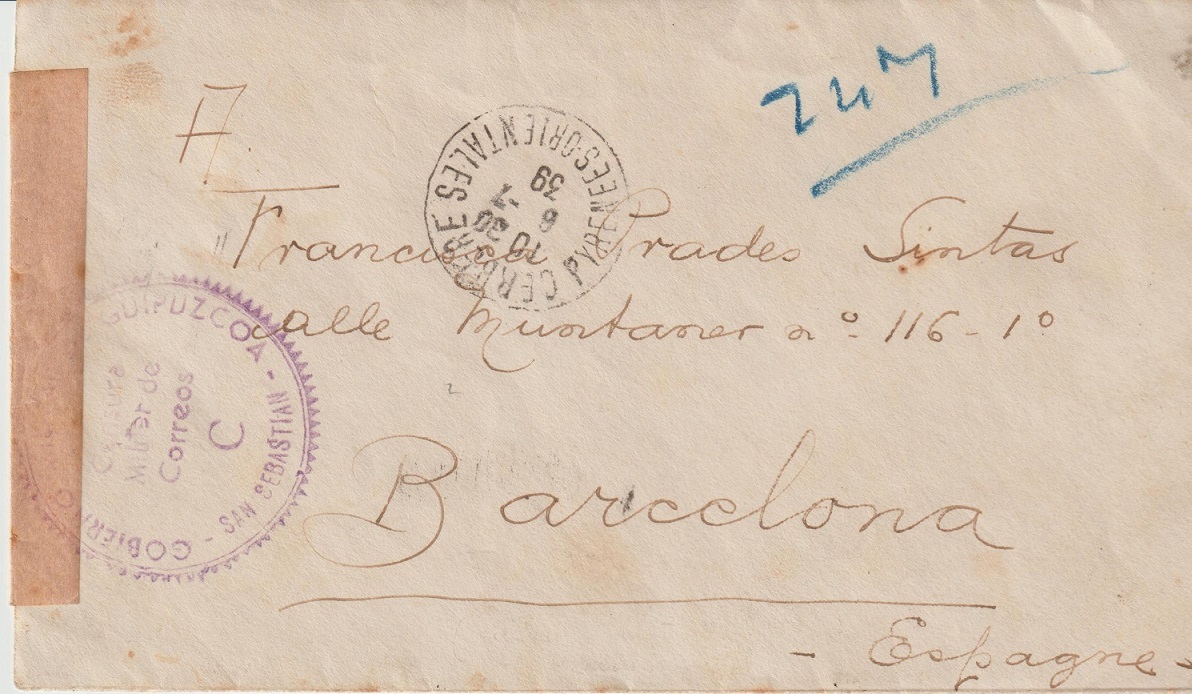 247
A.
Francisca Prades Sintas
calle Muntaner nº 116-1º
Barcelona
- Espagne -
CERBERE PYRENEES-ORIENTALES
10 30
6
39
GUIPUZCOA - SAN SEBASTIAN -
Censura
Militar de
Correos
C